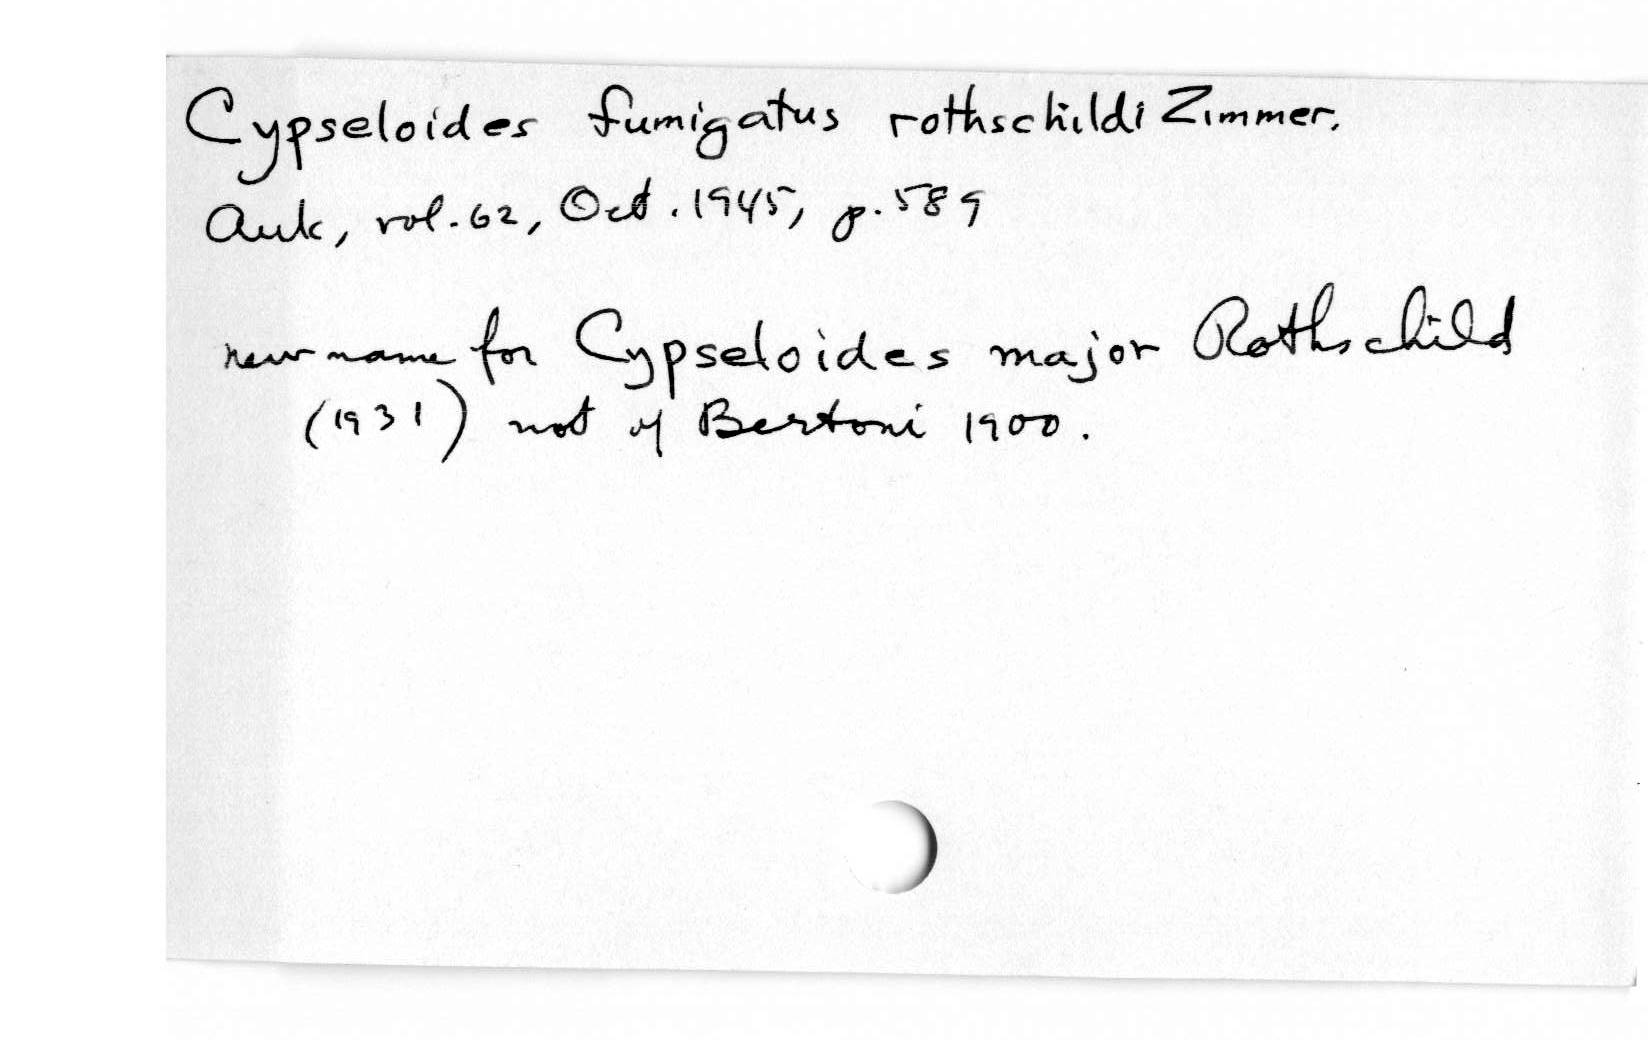 Cypseloides fumigatus rothschildi Zimmer.
Auk, vol. 62, Oct. 1945, p. 589
new name for Cypseloides major Rothschild
(1931) not of Bertoni 1900.